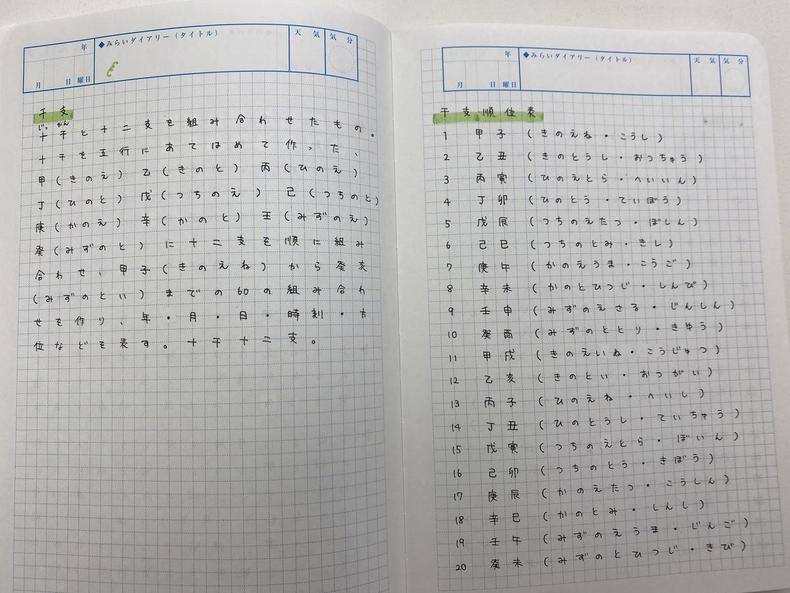 年
◆みらいダイアリー(タイトル)
天気
気分
月 日 曜日
干支
じっかん
十干と十二支を組み合わせたもの。
十干を五行にあてはめて作った、
甲(きのえ) 乙(きのと) 丙(ひのえ)
丁(ひのと) 戊(つちのえ) 己(つちのと)
庚(かのえ) 辛(かのと) 壬(みずのえ)
癸(みずのと) に十二支を順に組み
合わせ、甲子(きのえね) から癸亥
(みずのとい) までの60の組み合わ
せを作り、年・月・日・時刻・方
位などを表す。十干十二支。
年
◆みらいダイアリー(タイトル)
天気
気分
月 日 曜日
干支順位表
1 甲子 (きのえね・こうし)
2 乙丑 (きのとうし・おっちゅう)
3 丙寅 (ひのえとら・へいいん)
4 丁卯 (ひのとう・ていぼう)
5 戊辰 (つちのえたつ・ぼしん)
6 己巳 (つちのとみ・きし)
7 庚午 (かのえうま・こうご)
8 辛未 (かのとひつじ・しんび)
9 壬申 (みずのえさる・じんしん)
10 癸酉 (みずのととり・きゆう)
11 甲戌 (きのえいぬ・こうじゅつ)
12 乙亥 (きのとい・おつがい)
13 丙子 (ひのえね・へいし)
14 丁丑 (ひのとうし・ていちゅう)
15 戊寅 (つちのえとら・ぼいん)
16 己卯 (つちのとう・きぼう)
17 庚辰 (かのえたつ・こうしん)
18 辛巳 (かのとみ・しんし)
19 壬午 (みずのえうま・じんご)
20 癸未 (みずのとひつじ・きび)